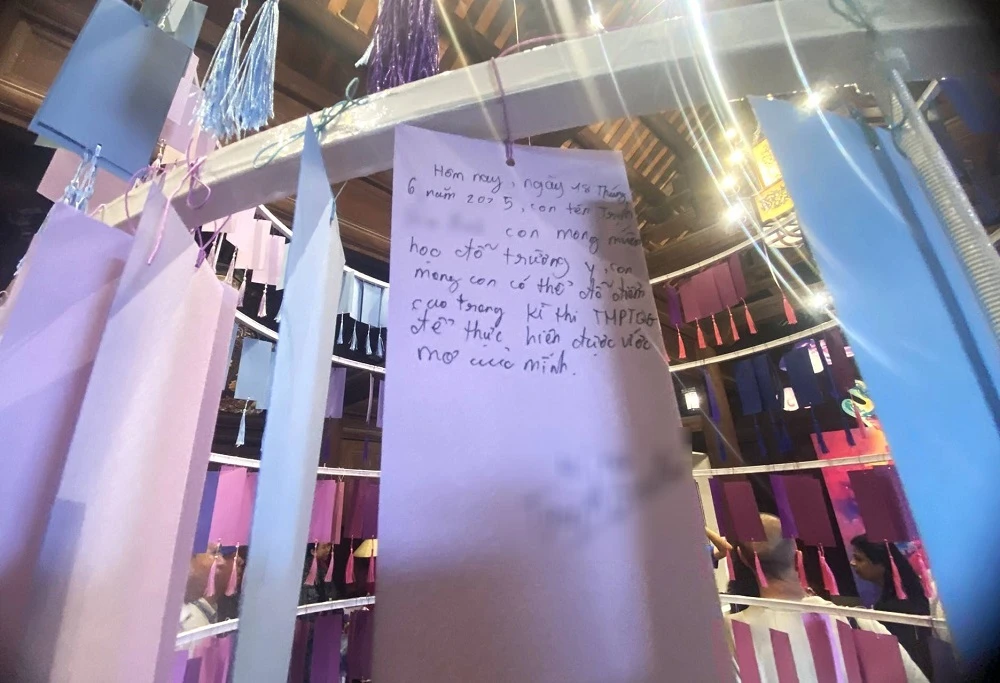 Hôm nay, ngày 18 Tháng
6 năm 2025, con tên Trịnh
con mong muốn
học đỗ trường y, con
mong con có thể đỗ điểm
cao trong kì thi TMPTQG
để thực hiện được ước
mơ của mình.